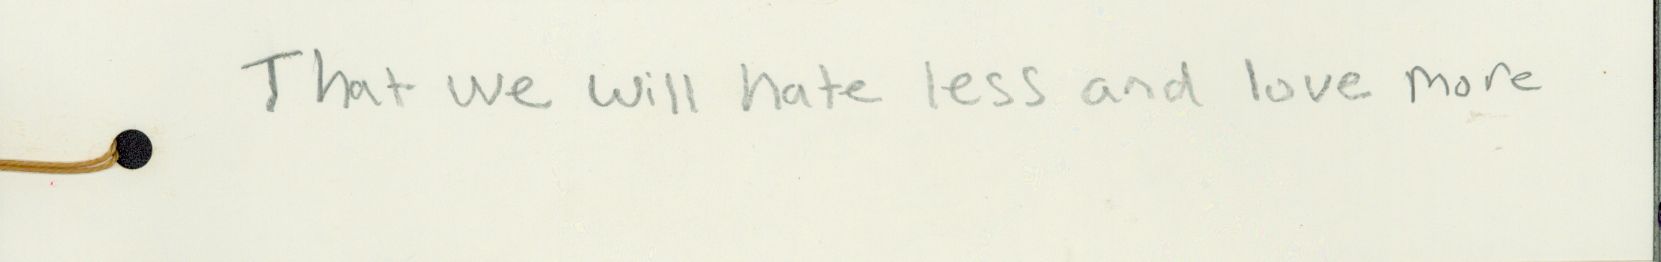 That we will hate less and love more